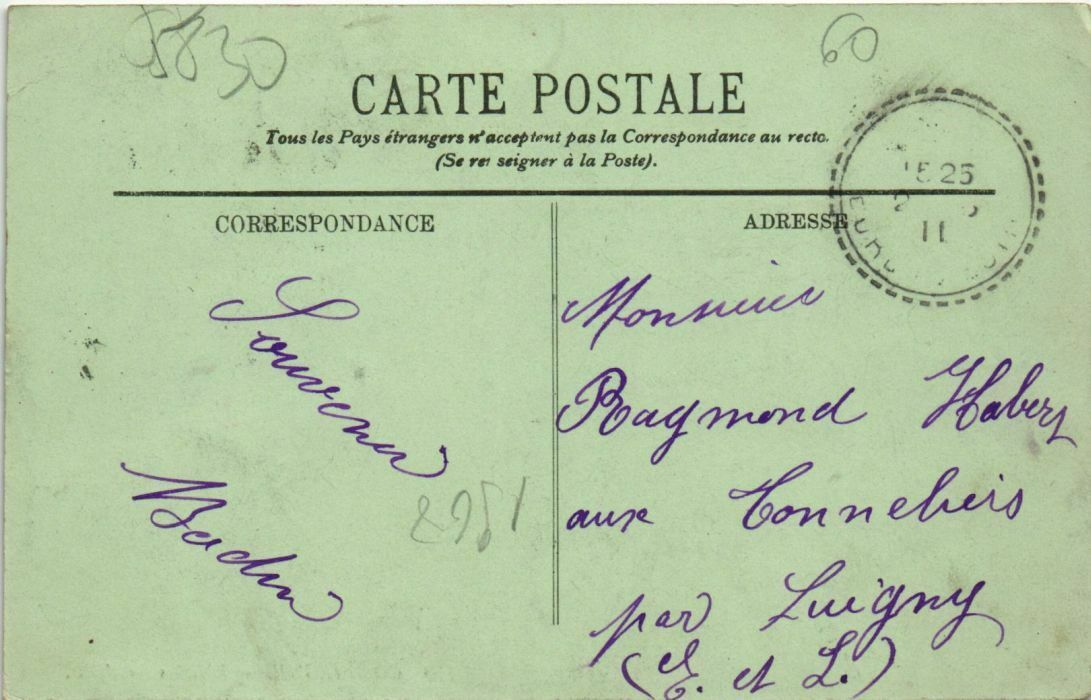 60
CARTE POSTALE
Tous les Pays étrangers n'acceptent pas la Correspondance au recto.
(Se renseigner à la Poste).
15 25
11
EURE
CORRESPONDANCE
ADRESSE
Souvenir
Monsieur
Raymond Habert
aux
par Luigny
(E. et L.)